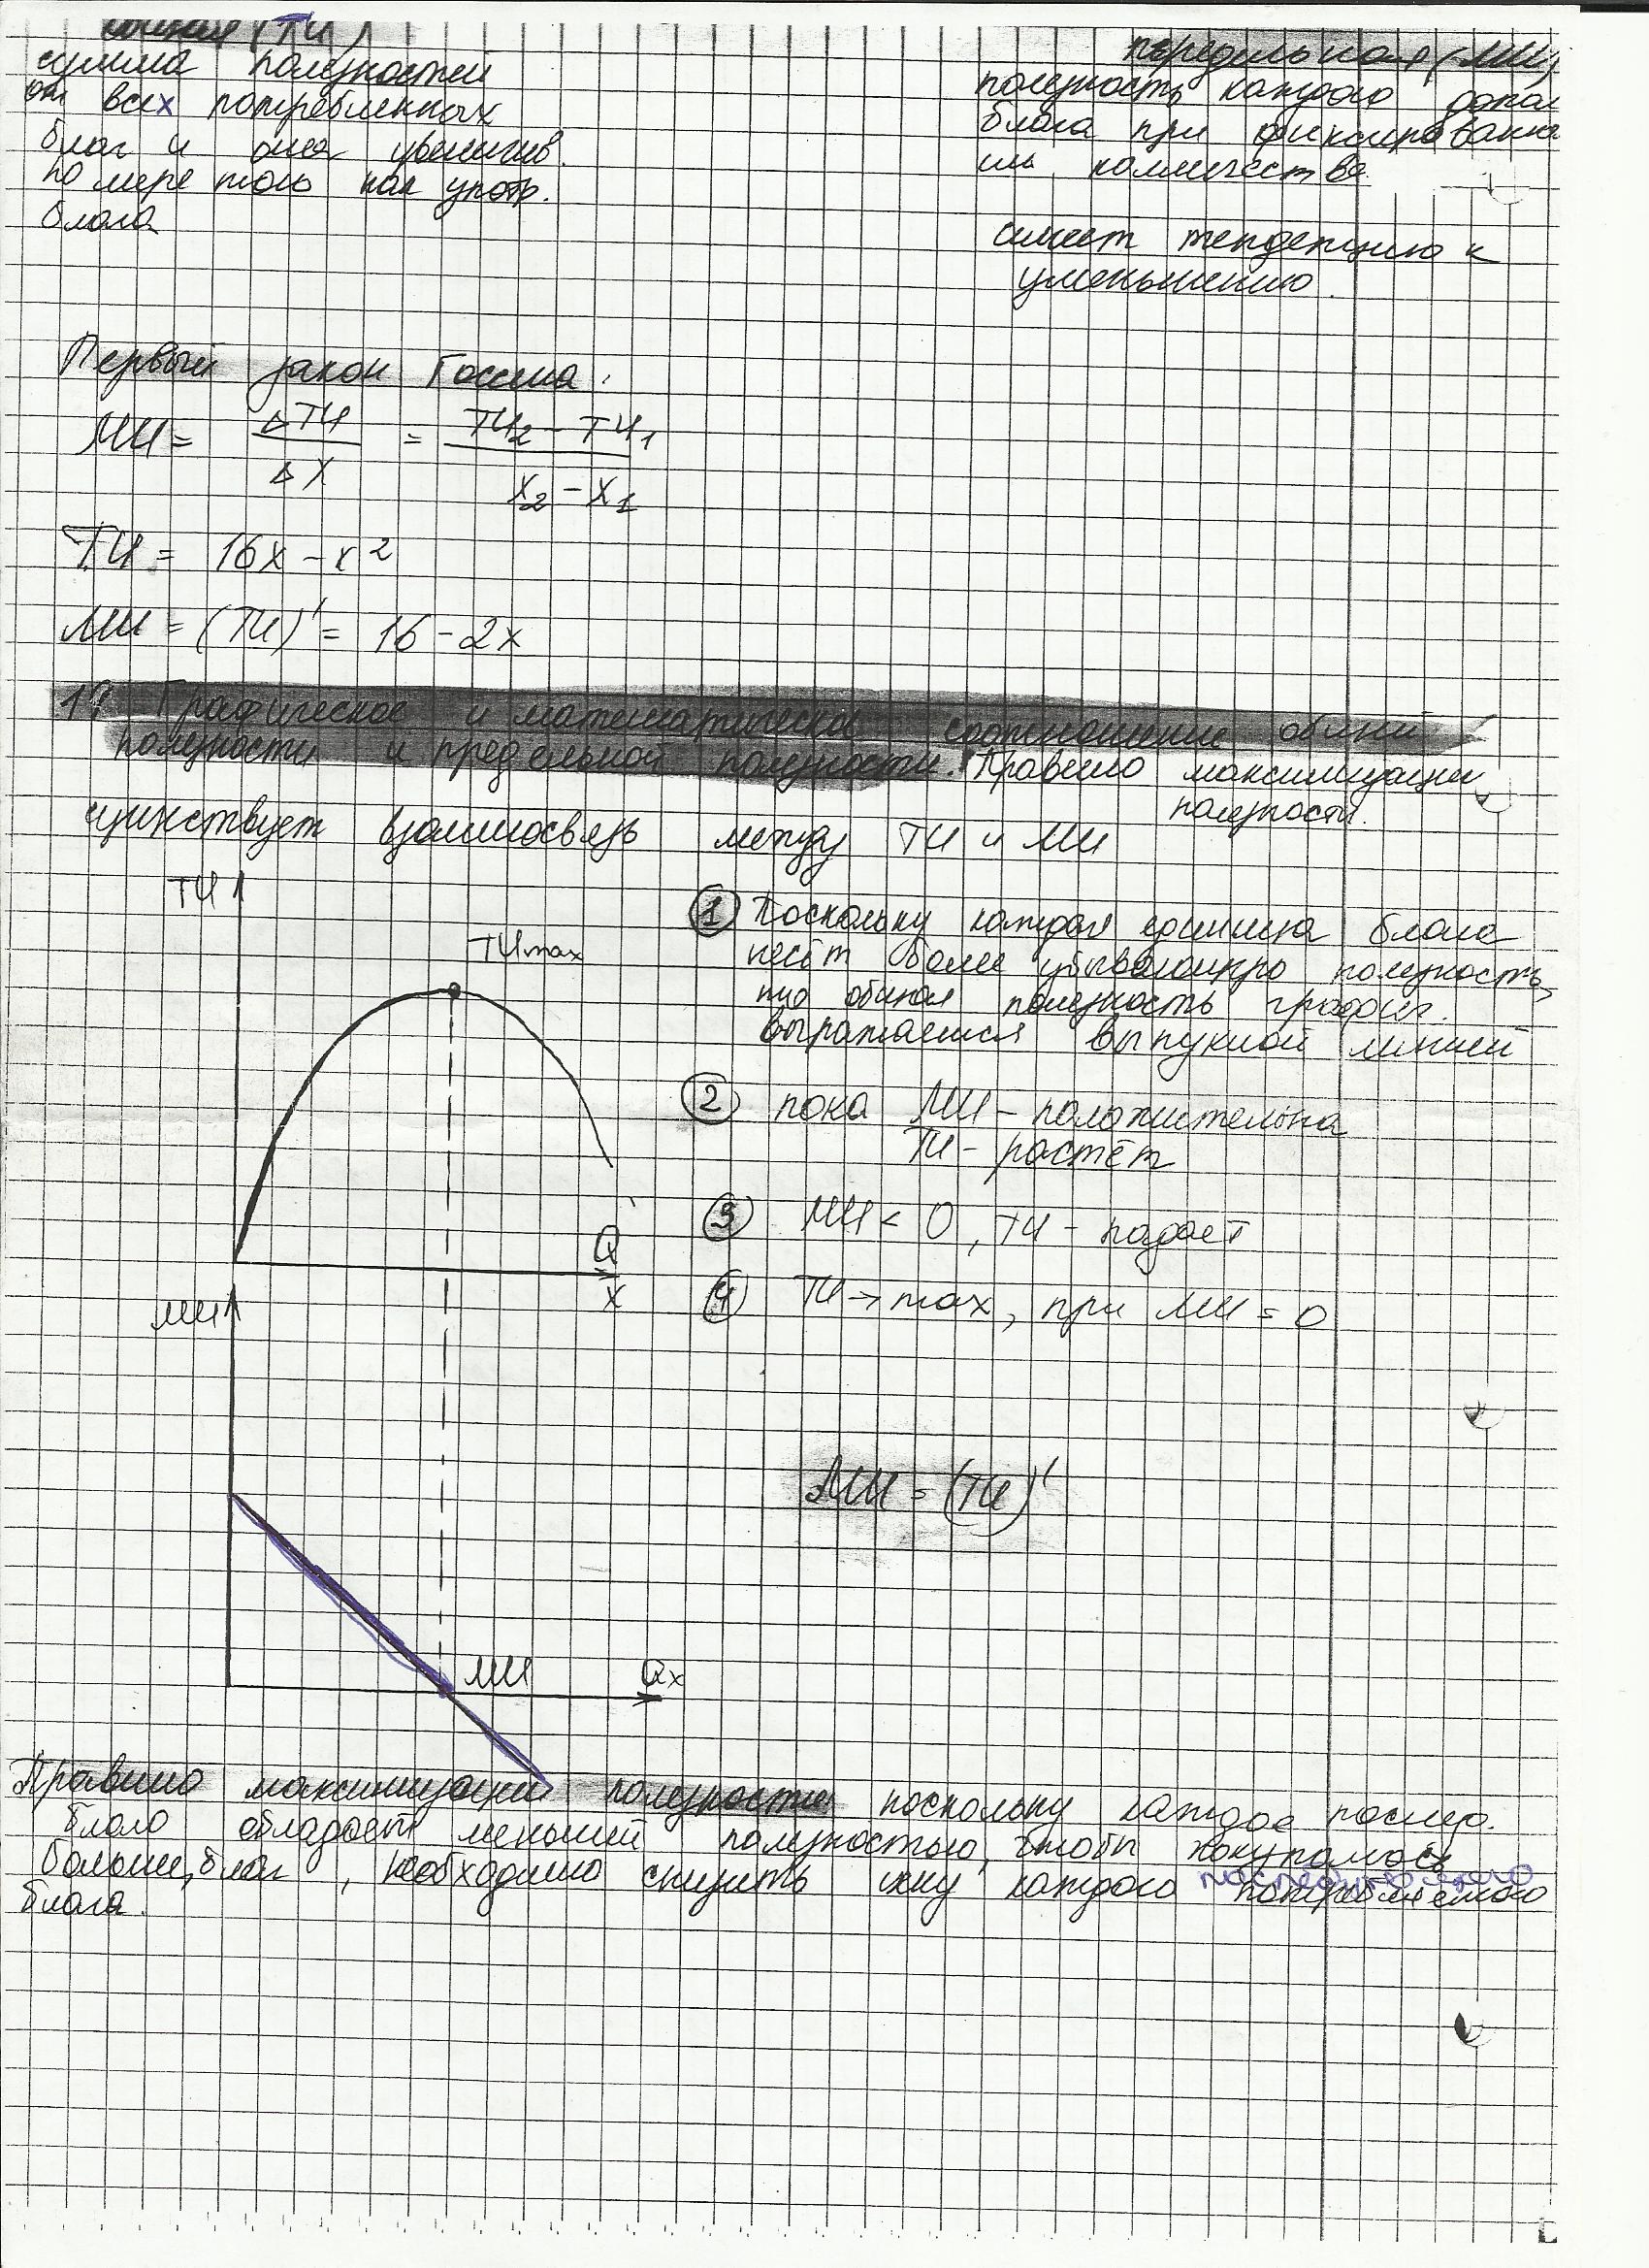 общая (TU)
сумма полезностей
от всех потребленных
благ и она увеличив.
по мере того как употр.
блага
передельная (MU)
полезность каждого допол
блага при фиксированн
им колличестве
имеет тенденцию к
уменьшению.
Первый закон Госсена:
MU = ΔTU / ΔX = TU₂ - TU₁ / X₂ - X₁
TU = 16x - x²
MU = (TU)' = 16 - 2x
1? Графическое и математическое соотношение общей
полезности и предельной полезности. Правило максимизации
полезности.
существует взаимосвязь между TU и MU
TU
TUmax
Q
X
① Поскольку каждая единица блага
несёт более убывающую полезность,
то общая полезность графич.
выражается выпуклой линией
② пока MU - положительна
TU - растёт
③ MU < 0, TU - падает
④ TU → max, при MU = 0
MU
MU = (TU)'
MU
Qx
Правило максимизации полезности поскольку каждое послед.
благо обладает меньшей полезностью, чтобы покупалось
больше благ, необходимо снизить цену каждого последующего потребляемого
блага.